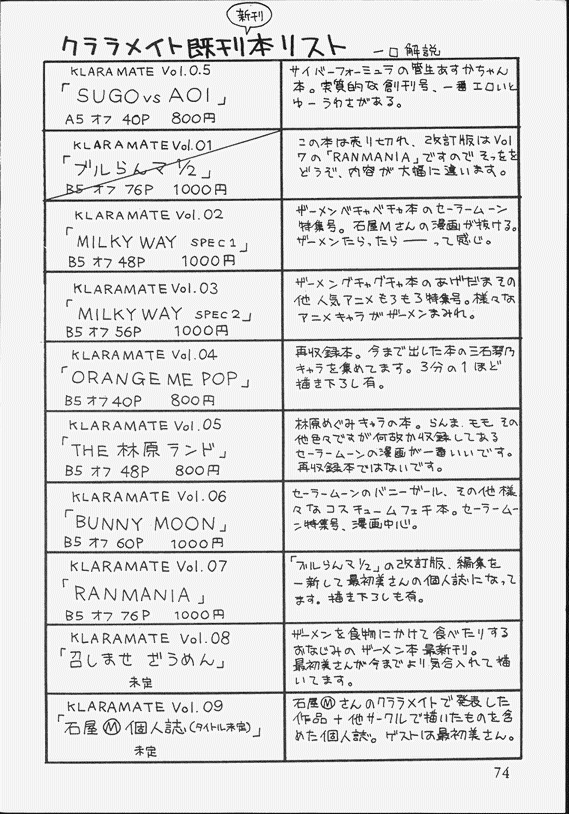 新刊
クララメイト既刊本リスト 一口解説
KLARAMATE Vol.0.5
「SUGO vs AOI」
A5 オフ 40P 800円
サイバーフォーミュラの菅生あすかちゃん
本。実質的な創刊号、一番エロいと
ゆーうわさがある。
KLARAMATE Vol.01
「ブルらんマ1/2」
B5 オフ 76P 1000円
この本は売り切れ、改訂版はVol
7の「RANMANIA」ですのでそっちを
どうぞ、内容が大幅に違います。
KLARAMATE Vol.02
「MILKY WAY SPEC1」
B5 オフ 48P 1000円
ザーメンベチャベチャ本のセーラームーン
特集号。石屋Mさんの漫画が抜ける。
ザーメンたらったら――って感じ。
KLARAMATE Vol.03
「MILKY WAY SPEC2」
B5 オフ 56P 1000円
ザーメングチャグチャ本のあげだまその
他人気アニメもろもろ特集号。様々な
アニメキャラがザーメンまみれ。
KLARAMATE Vol.04
「ORANGE ME POP」
B5 オフ 40P 800円
再収録本。今まで出した本の三石琴乃
キャラを集めてます。3分の1ほど
描き下ろし有。
KLARAMATE Vol.05
「THE 林原ランド」
B5 オフ 48P 800円
林原めぐみキャラの本。らんま、ももその
他色々ですが何故か収録してある
セーラームーンの漫画が一番いいです。
再収録本ではないです。
KLARAMATE Vol.06
「BUNNY MOON」
B5 オフ 60P 1000円
セーラームーンのバニーガール、その他様
々なコスチュームフェチ本。セーラームー
ン特集号、漫画中心。
KLARAMATE Vol.07
「RANMANIA」
B5 オフ 76P 1000円
「ブルらんマ1/2」の改訂版、編集を
一新して最初美さんの個人誌になって
ます。描き下ろしも有。
KLARAMATE Vol.08
「召しませ ざうめん」
未定
ザーメンを食物にかけて食べたりする
おなじみのザーメン本最新刊。
最初美さんが今までより気合入れて描
いてます。
KLARAMATE Vol.09
「石屋Ⓜ個人誌(タイトル未定)」
未定
石屋Ⓜさんのクララメイトで発表した
作品+他サークルで描いたものを含
めた個人誌。ゲストは最初美さん。
74